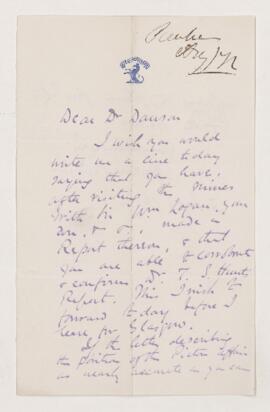 Dear Dr Dawson
I wish you would
write me a line today
saying that you have,
after visiting the mines
with Sir Wm Logan, you
made a
Report thereon, & that
you are able to corroborate
& confirm Dr T. S. Hunt's
Report. This I wish to
forward today before I
leave for Glasgow.
In the letter describing
the position of the
as nearly accurate as you can